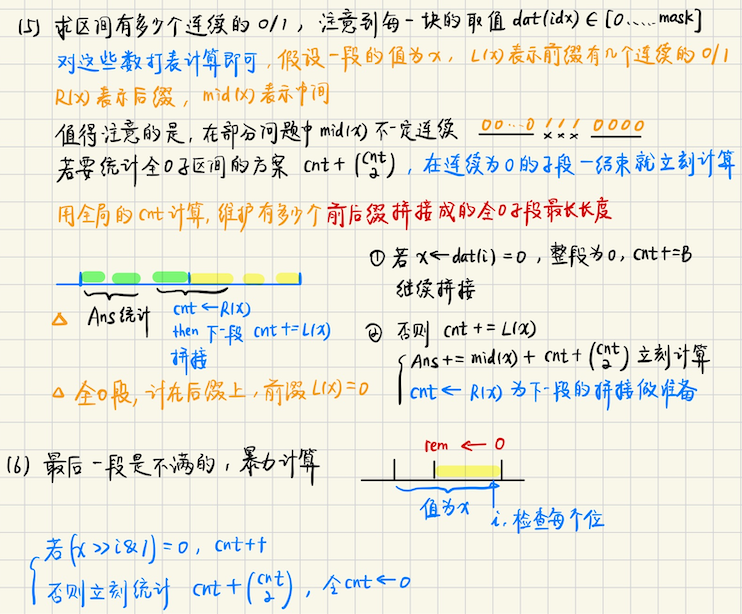 (5) 求区间有多少个连续的 0/1，注意到每一块的取值 dat(idx) ∈ [0.....mask]
对这些数打表计算即可，假设一段的值为x，L(x)表示前缀有几个连续的 0/1
R(x)表示后缀，mid(x)表示中间
值得注意的是，在部分问题中mid(x)不一定连续 00...0 111 0000
xxx
若要统计全0子区间的方案 cnt + (cnt 2)，在连续为0的子段一结束就立刻计算
用全局的cnt计算，维护有多少个前后缀拼接成的全0子段最长长度
① 若 x←dat(i)=0，整段为0，cnt+=B
继续拼接
Ans统计
cnt←R(x)
then 下一段 cnt+=L(x)
拼接
② 否则 cnt += L(x)
Ans += mid(x) + cnt + (cnt 2) 立刻计算
cnt ← R(x) 为下一段的拼接做准备
△ 全0段，计在后缀上，前缀L(x)=0
(6) 最后一段是不满的，暴力计算
rem ← 0
值为x
i，检查每个位
若(x>>i&1)=0，cnt++
否则立刻统计 cnt+(cnt 2)，令cnt←0